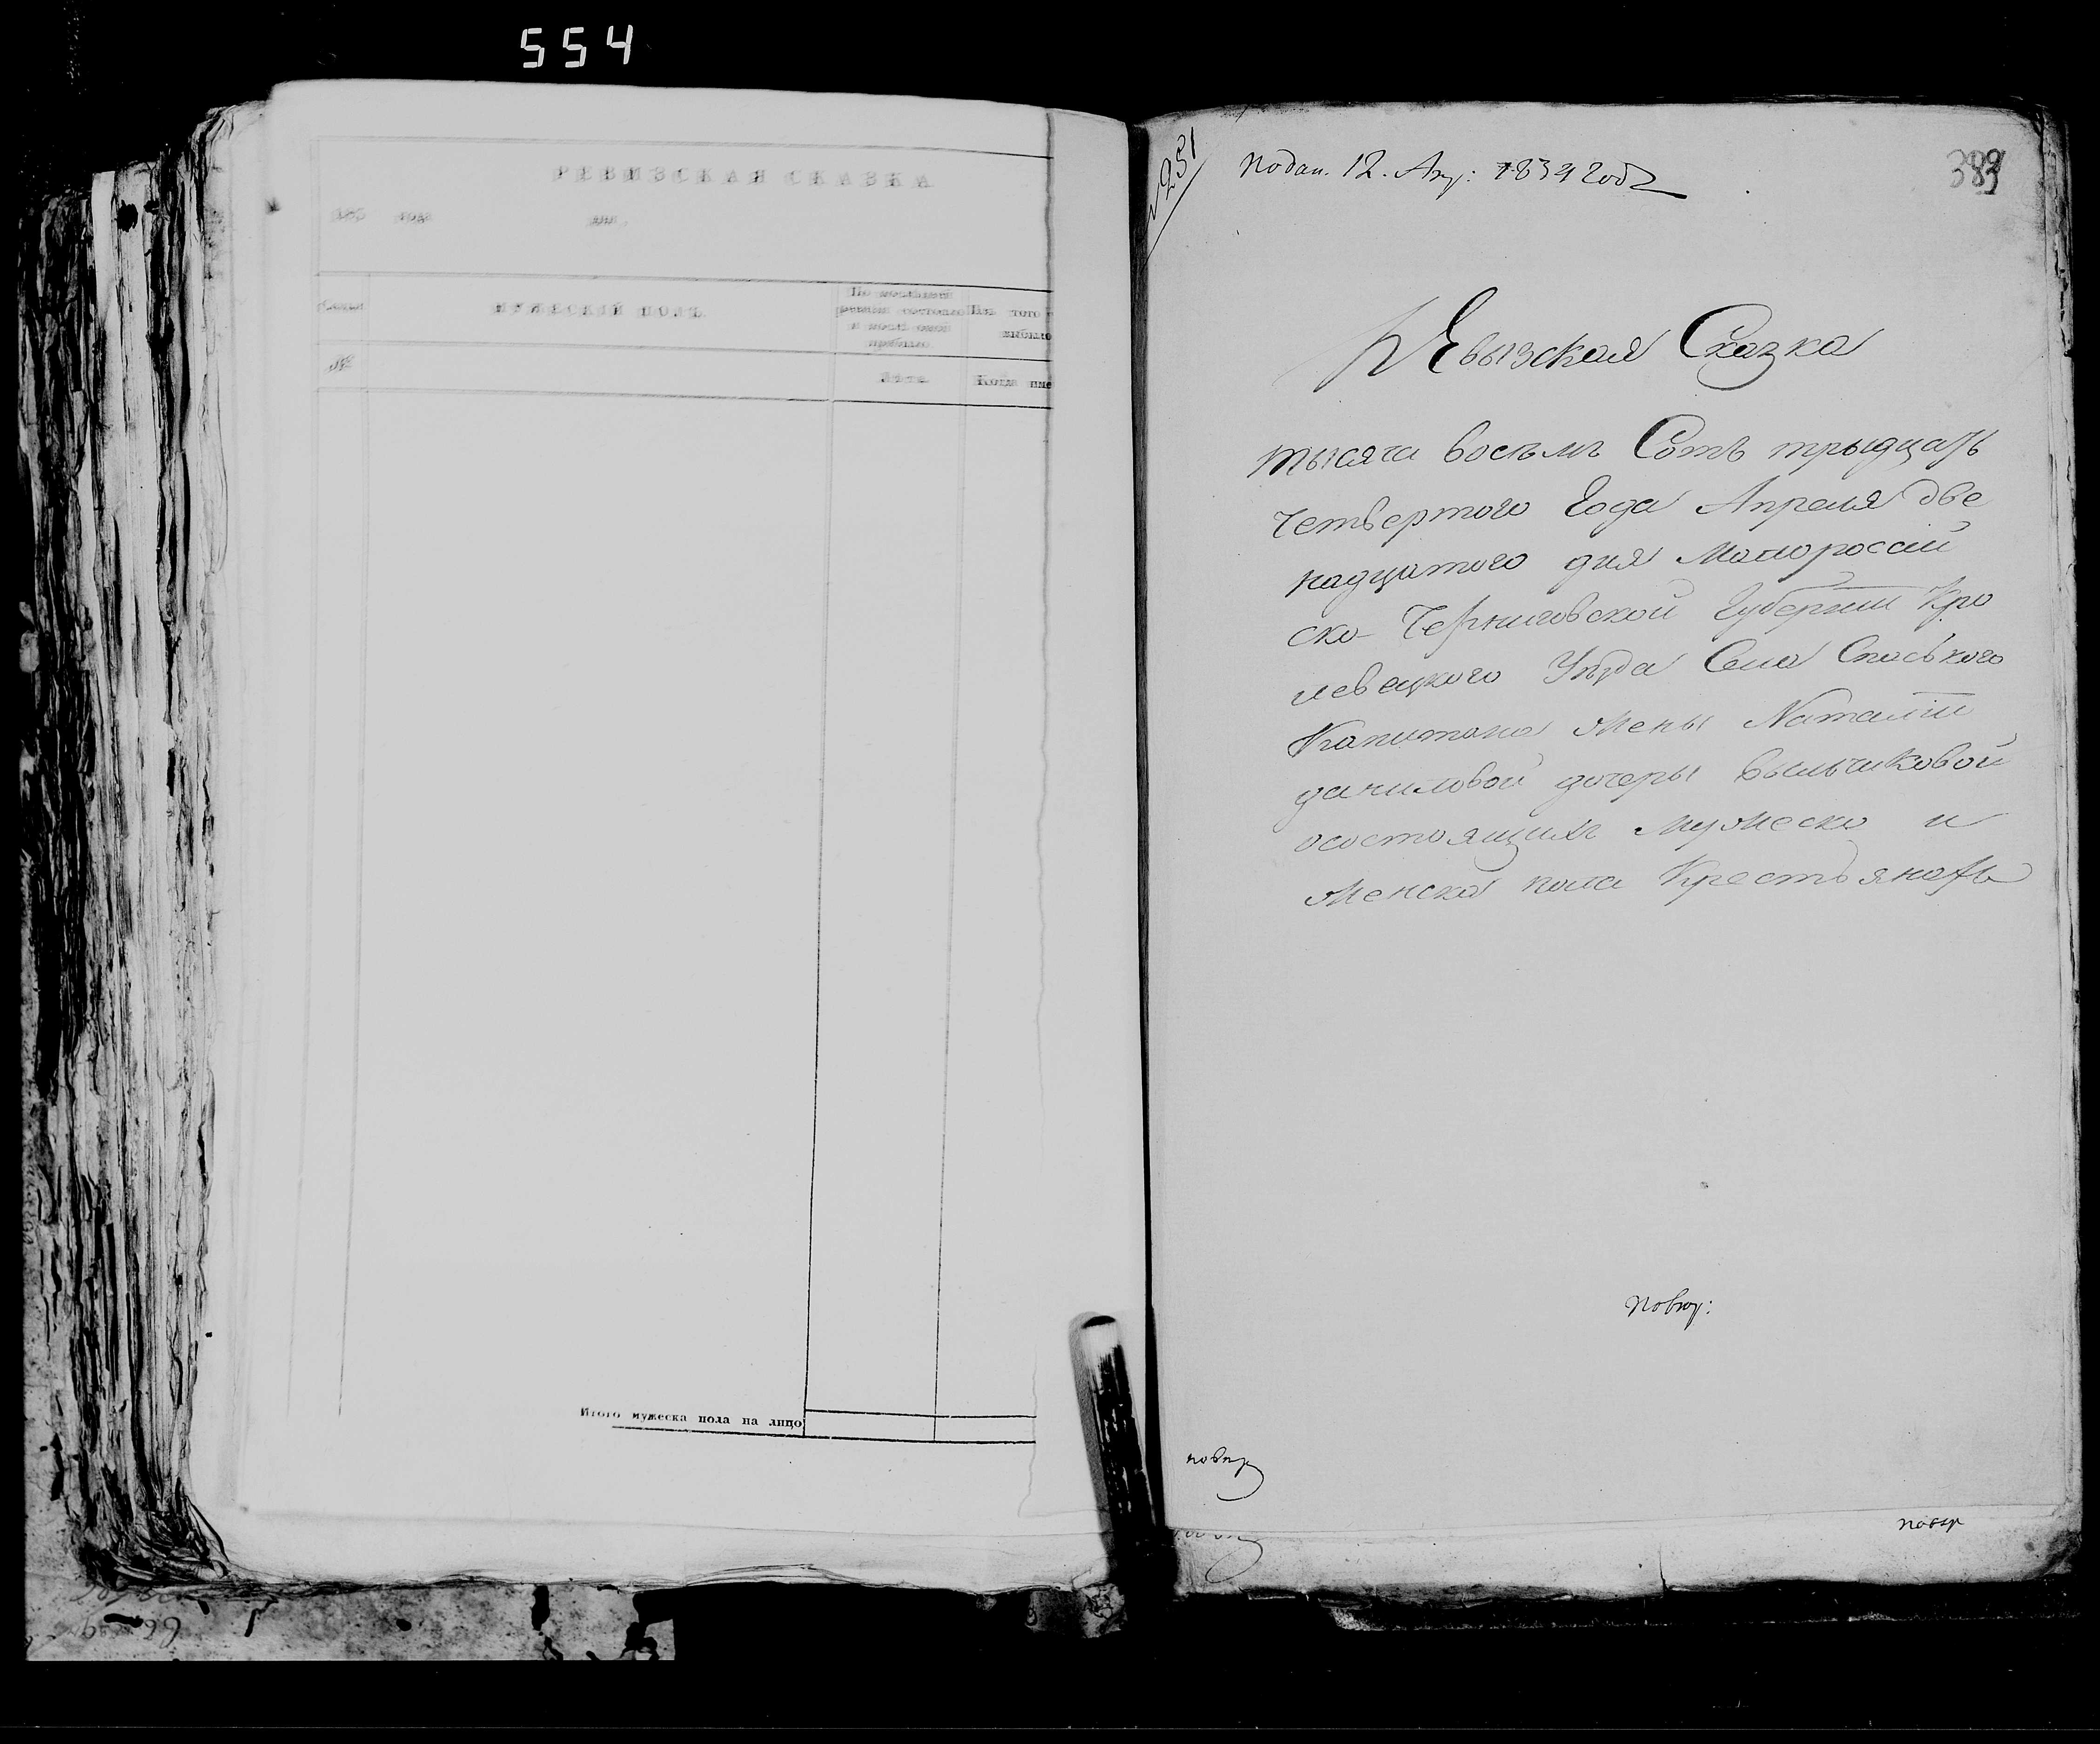 554
РЕВИЗСКАЯ СКАЗКА
185 года дня
Семьи
МУЖЕСКІЙ ПОЛЪ.
По последней ревизіи состояло и после оной прибыло.
Изъ того выбыло
№
Лѣта.
Когда име
Итого мужеска пола на лицо
№251
Подан. 12. Апр: 1834 года
389
РЕвызская Сказка
тысяча восемь Сотъ трыдцать
четвертого Года Апреля две
надцатого дня Малороссій
ско-Черниговской Губерніи Кро
левецкого Уезда Села Спаського
Капитана жены Наталіи
даниловой дочеры
осостоящихъ мужеска и
женска пола Крестьянахъ
повер:
повер
повер